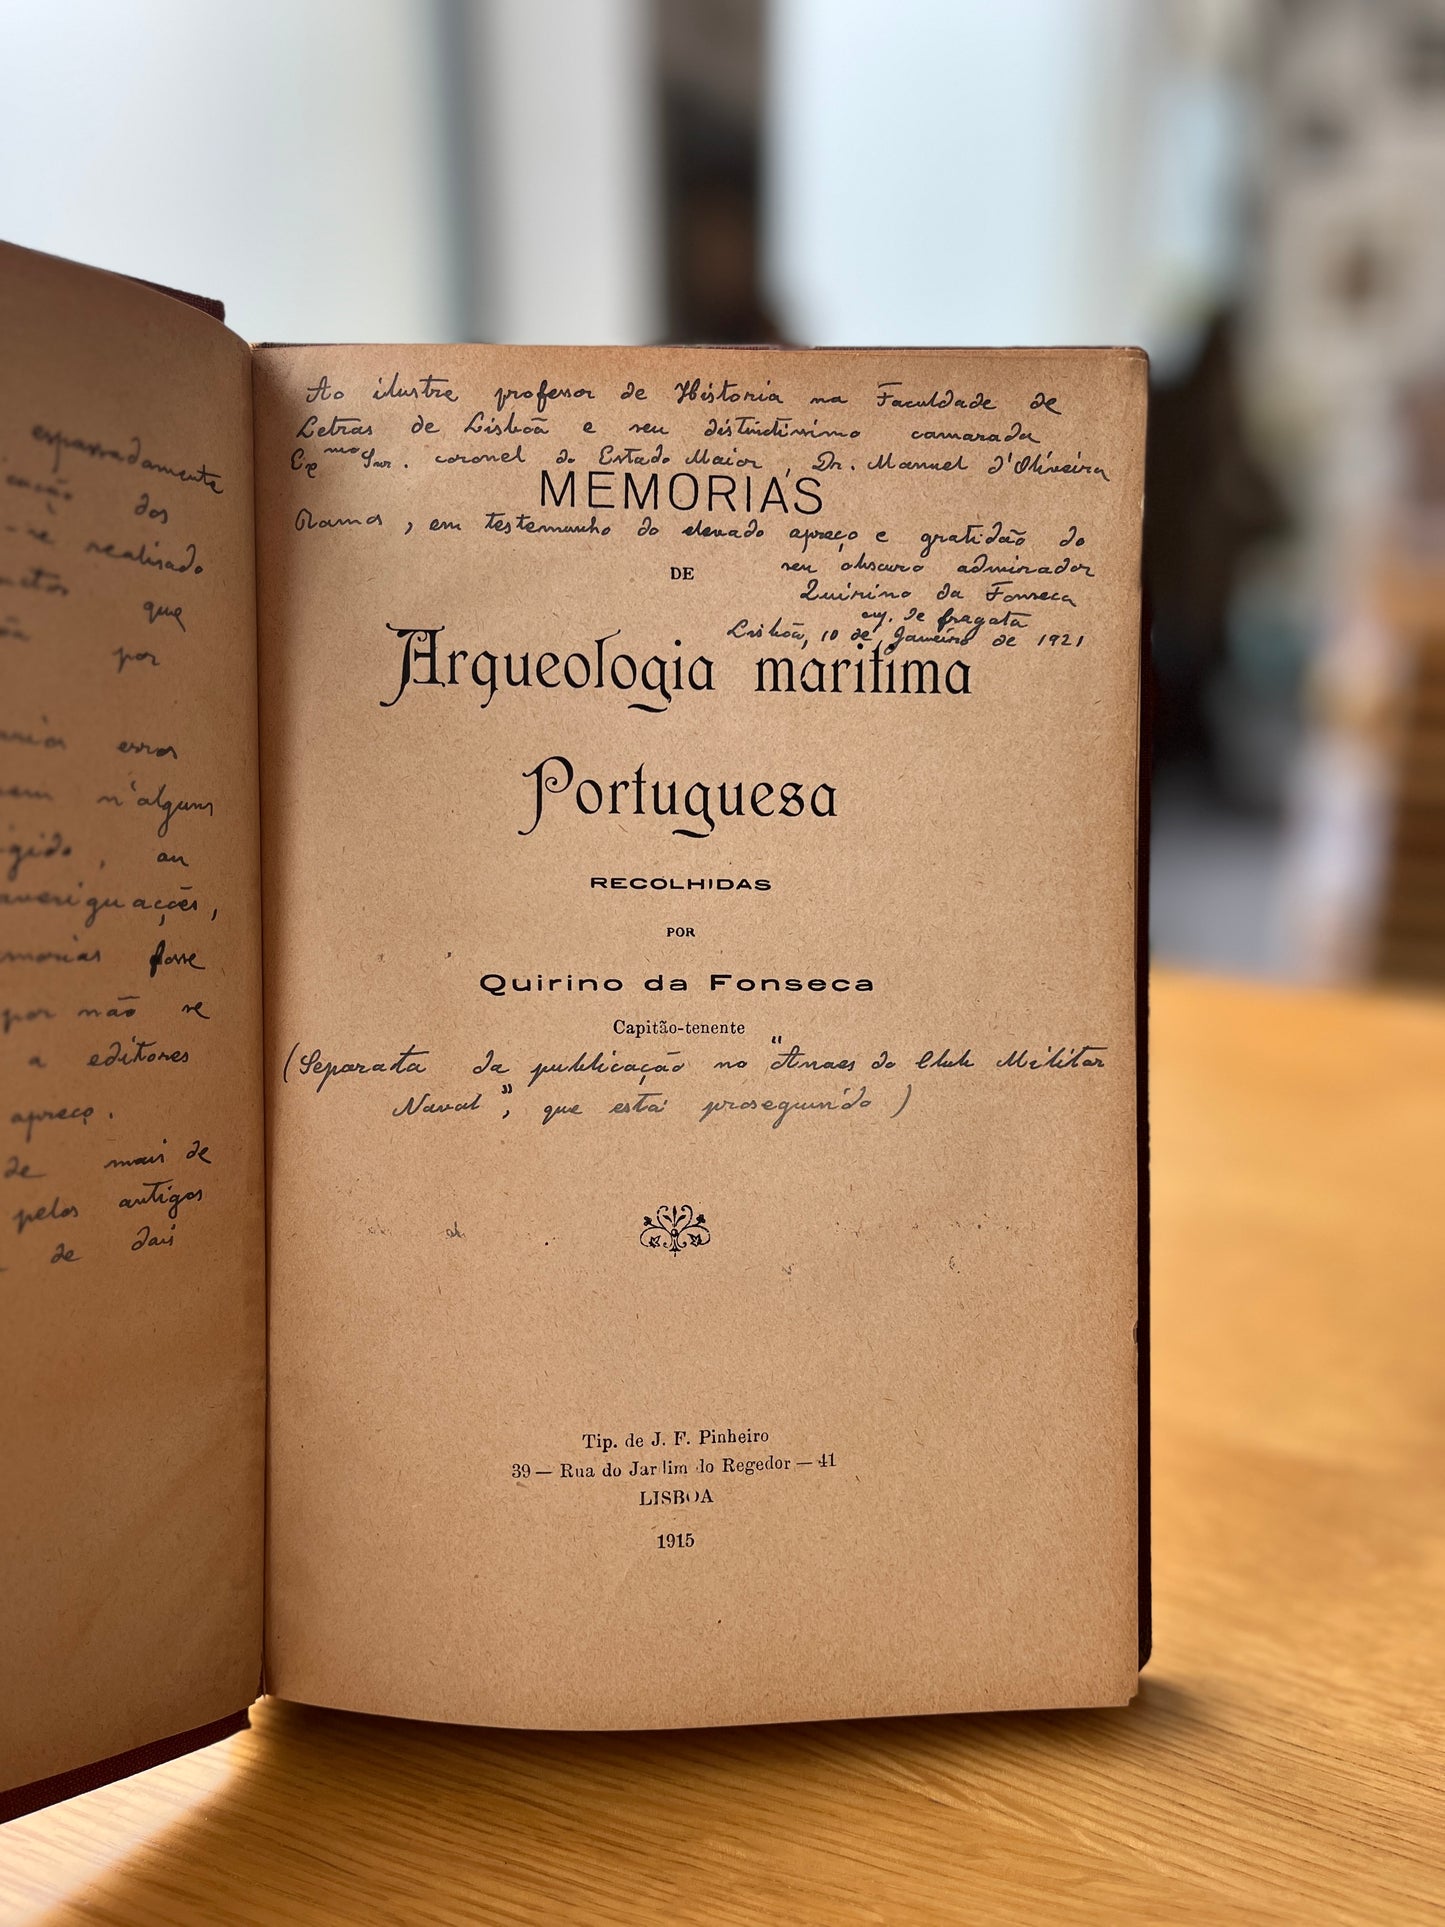 espassadamente
dos
realisado
que
por
erros
n'alguns
ou
averiguações,
fosse
por não se
a editores
apreço.
de mais de
pelos antigos
de dois
Ao ilustre professor de Historia na Faculdade de
Letras de Lisbôa e seu distinctissimo camarada
Exmo Snr. coronel do Estado Maior, Dr. Manuel d'Oliveira
MEMORIAS
Ramos, em testemunho do elevado apreço e gratidão do
seu obscuro admirador
DE
Quirino da Fonseca
cap. de fragata
Lisbôa, 10 de Janeiro de 1921
Arqueologia maritima
Portuguesa
RECOLHIDAS
POR
Quirino da Fonseca
Capitão-tenente
(Separata da publicação no "Anaes do Club Militar
Naval", que está proseguindo)
Tip. de J. F. Pinheiro
39 — Rua do Jardim do Regedor — 41
LISBOA
1915